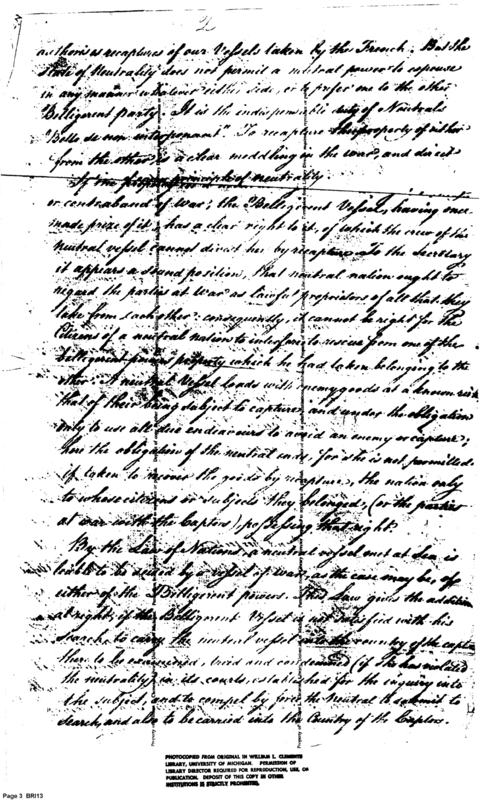 2
authorises recaptures of our Vessels taken by the French. But the
State of Neutrality does not permit a neutral power to espouse
in any manner whatever either side, or to prefer one to the other
Belligerent party. It is the indispensable duty of Neutrals
"Bello se non interponant". To recapture the property of either
from the other is a clear meddling in the war, and direct
principle of neutrality.
or contraband of war; the Belligerent Vessel, having once
made prize of it, has a clear right to it, of which the crew of the
neutral vessel cannot divest her by recapture. To the Secretary
it appears a sound position, that neutral nation ought to
regard the parties at War as lawful proprietors of all that they
take from each other: consequently, it cannot be right for the
Citizens of a neutral nation to interfere to rescue from one of the
Belligerent property which he had taken belonging to the
other. A neutral Vessel loads with enemy goods at a known risk
that of their being subject to capture, and under the obligation
only to use all due endeavours to avoid an enemy or capture;
here the obligation of the neutral ends, for she is not permitted
if taken to recover the goods by recapture, the nation only
to whose citizens or subjects they belonged, (or the parties
at war with the Captors), possessing that right.
By the Law of Nations, a neutral vessel met at Sea is
liable to be seized by a vessel of war, as the case may be, of
either of the Belligerent powers. This Law gives the addition
al right, if the Belligerent Vessel is not satisfied with his
search, to carry the neutral vessel into the country of the captor
there to be examined, tried and condemned (if she has violated
the neutrality) in its courts, established for the inquiry into
the subject, and to compel by force the neutral to submit to
search, and also to be carried into the Country of the Captors.
PHOTOCOPIED FROM ORIGINAL IN WILLIAM L. CLEMENTS
LIBRARY, UNIVERSITY OF MICHIGAN. PERMISSION OF
LIBRARY DIRECTOR REQUIRED FOR REPRODUCTION, USE, OR
PUBLICATION. DEPOSIT OF THIS COPY IN OTHER
INSTITUTIONS IS STRICTLY PROHIBITED.
Page 3 BRI13